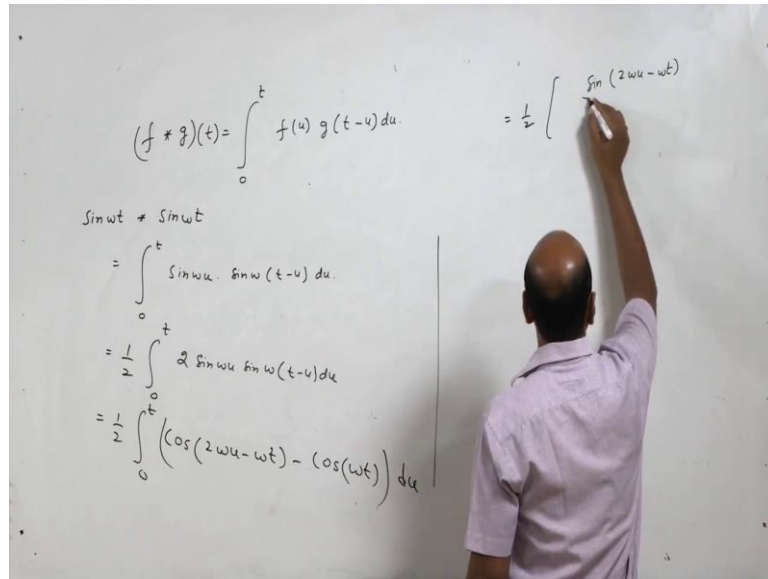 (f * g)(t) = ∫₀ᵗ f(u) g(t-u) du.
Sin wt * Sin wt
= ∫₀ᵗ Sin wu . Sin w (t-u) du.
= 1/2 ∫₀ᵗ 2 Sin wu Sin w (t-u) du
= 1/2 ∫₀ᵗ (Cos(2wu-wt) - Cos(wt)) du
= 1/2 [ Sin (2wu-wt)